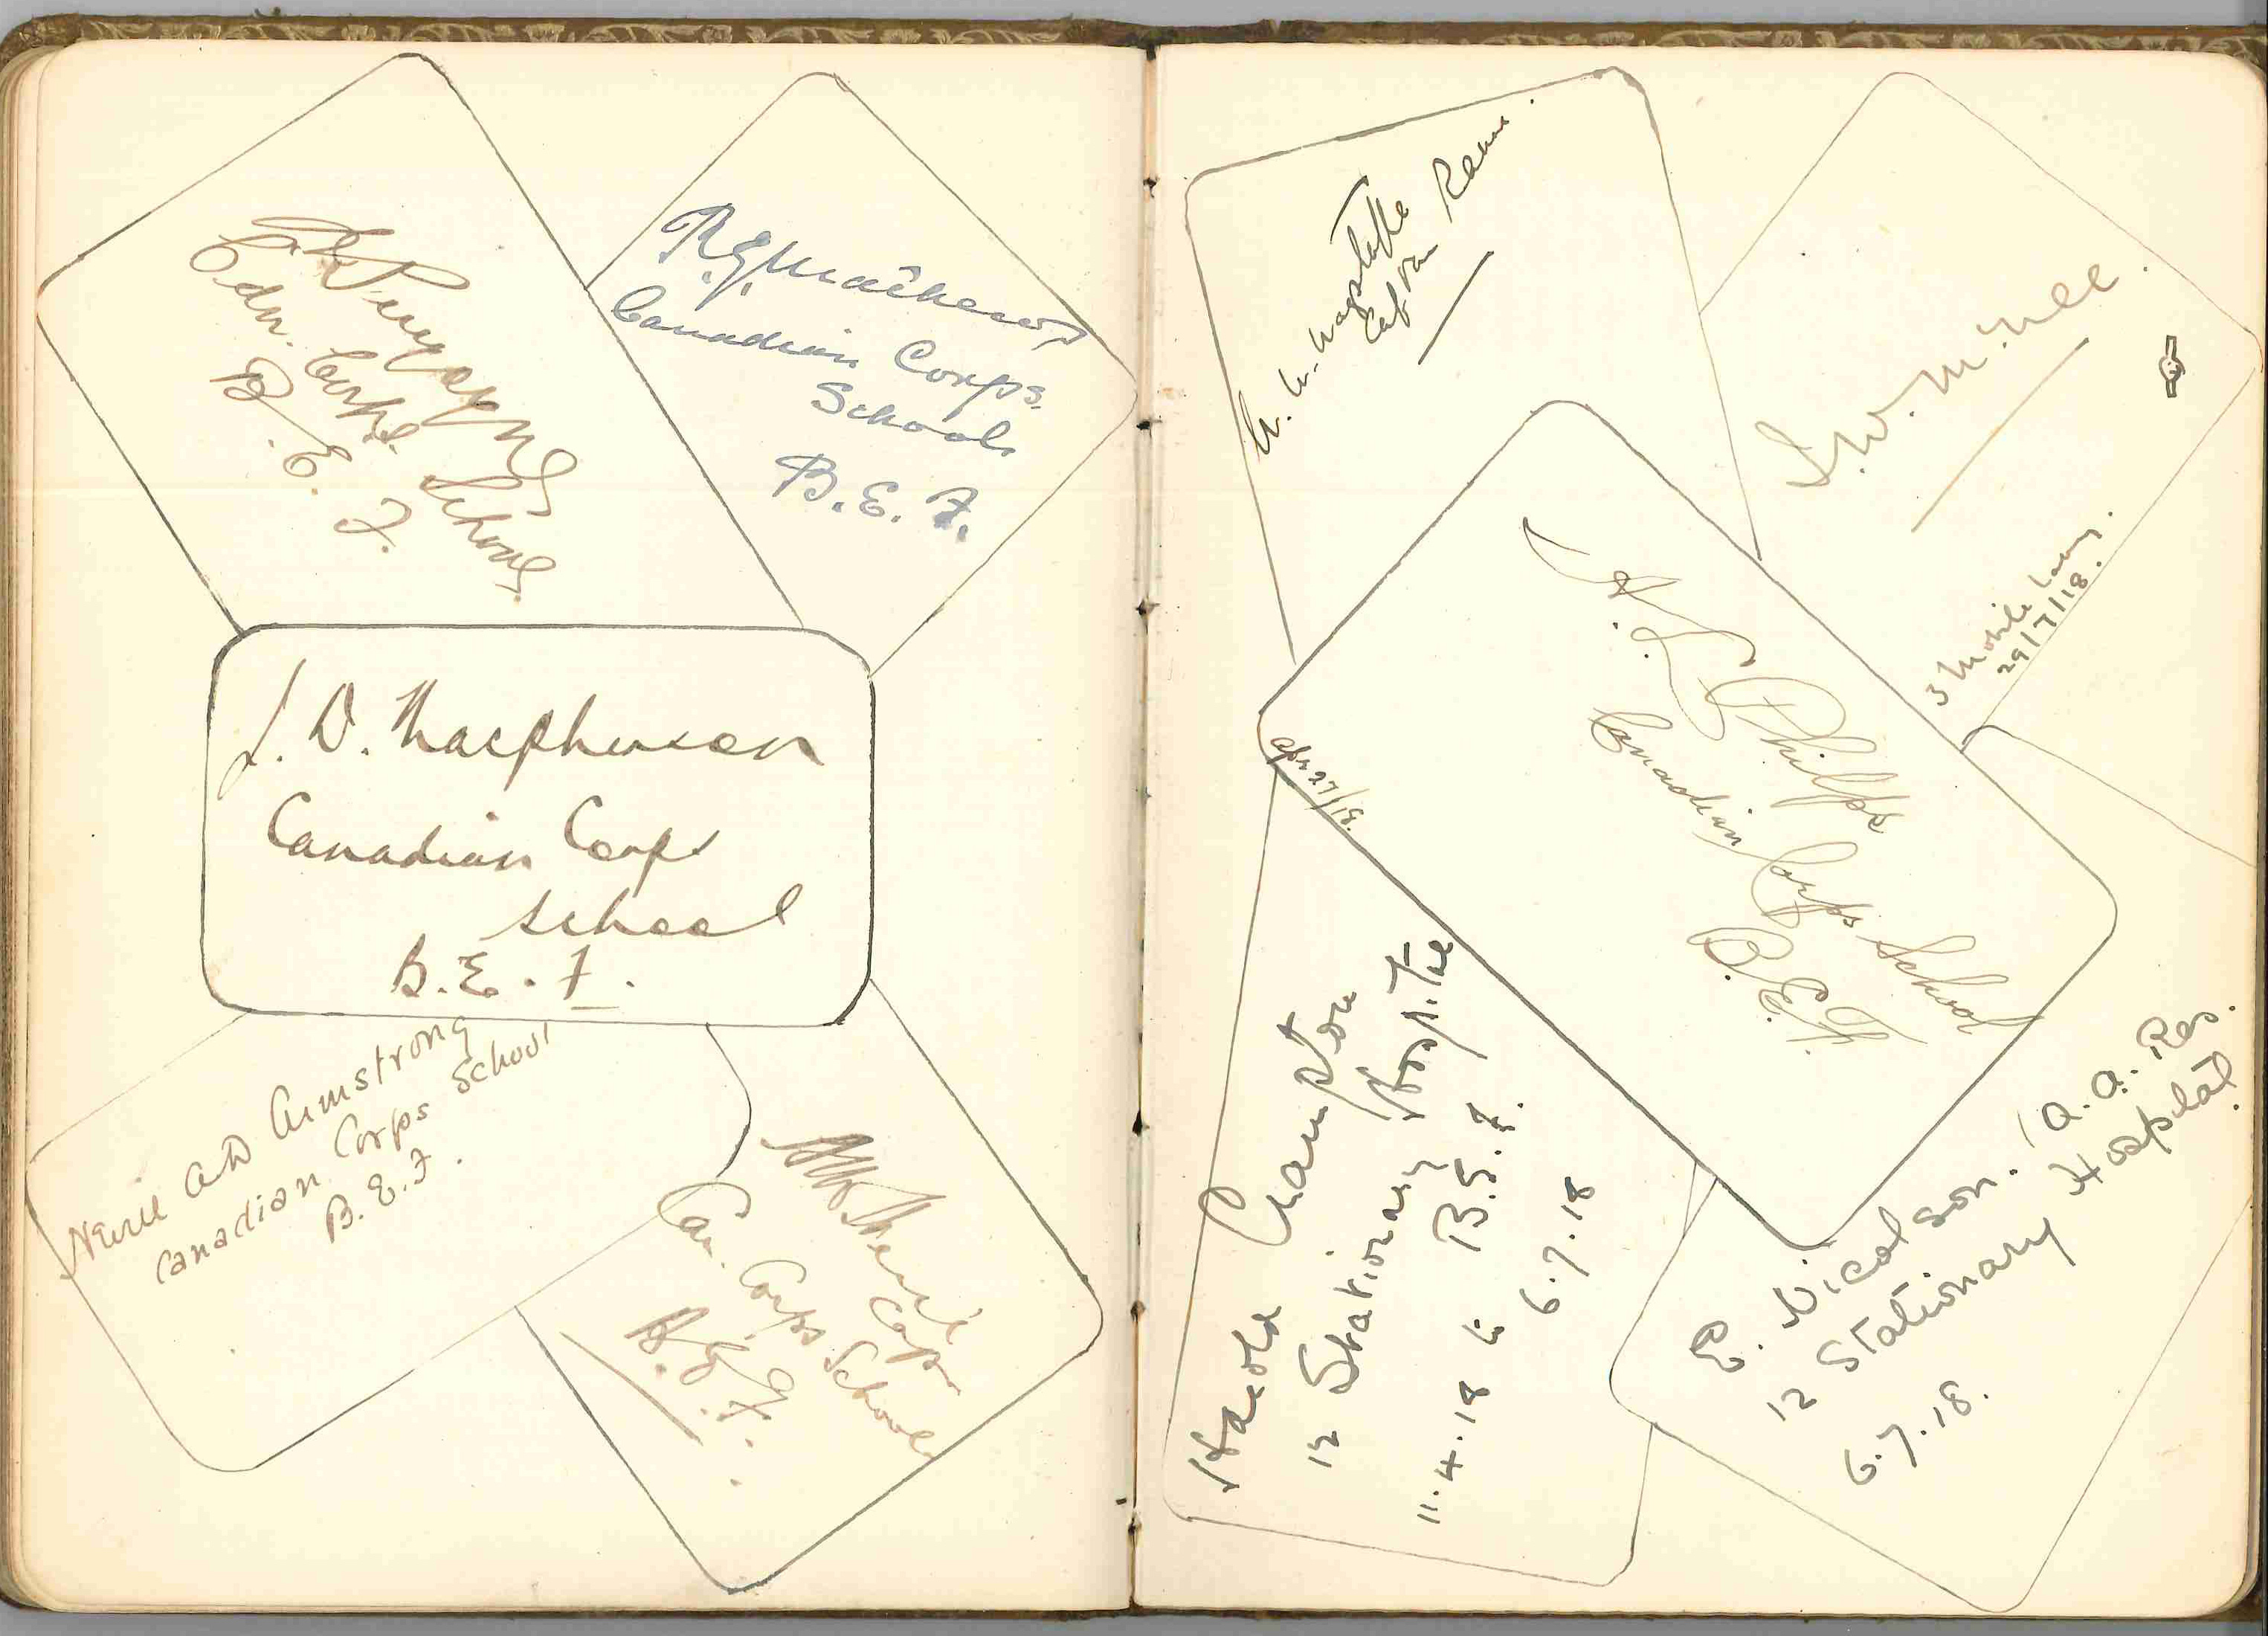 Cdn. Corps. School,
B. E. F.
R. G. Mathews
Canadian Corps.
Schools
B. E. F.
J. D. Macpherson
Canadian Corps
School
B. E. F.
Nevil AD Armstrong
Canadian Corps School
B. E. F.
Capt
Can. Corps School
B. E. F.
W. W. Wagstaffe
Capt RAMC
S. W. McNee
3 Mobile Lab.
29/7/18.
A. L. Philips
Canadian Corps School
B. E. F.
Apr 27/18.
Harold Champion
12 Stationary Hospital
B.E.F.
11.4.18 to 6.7.18
E. Nicolson. A. A. Res.
12 Stationary Hospital
6.7.18.